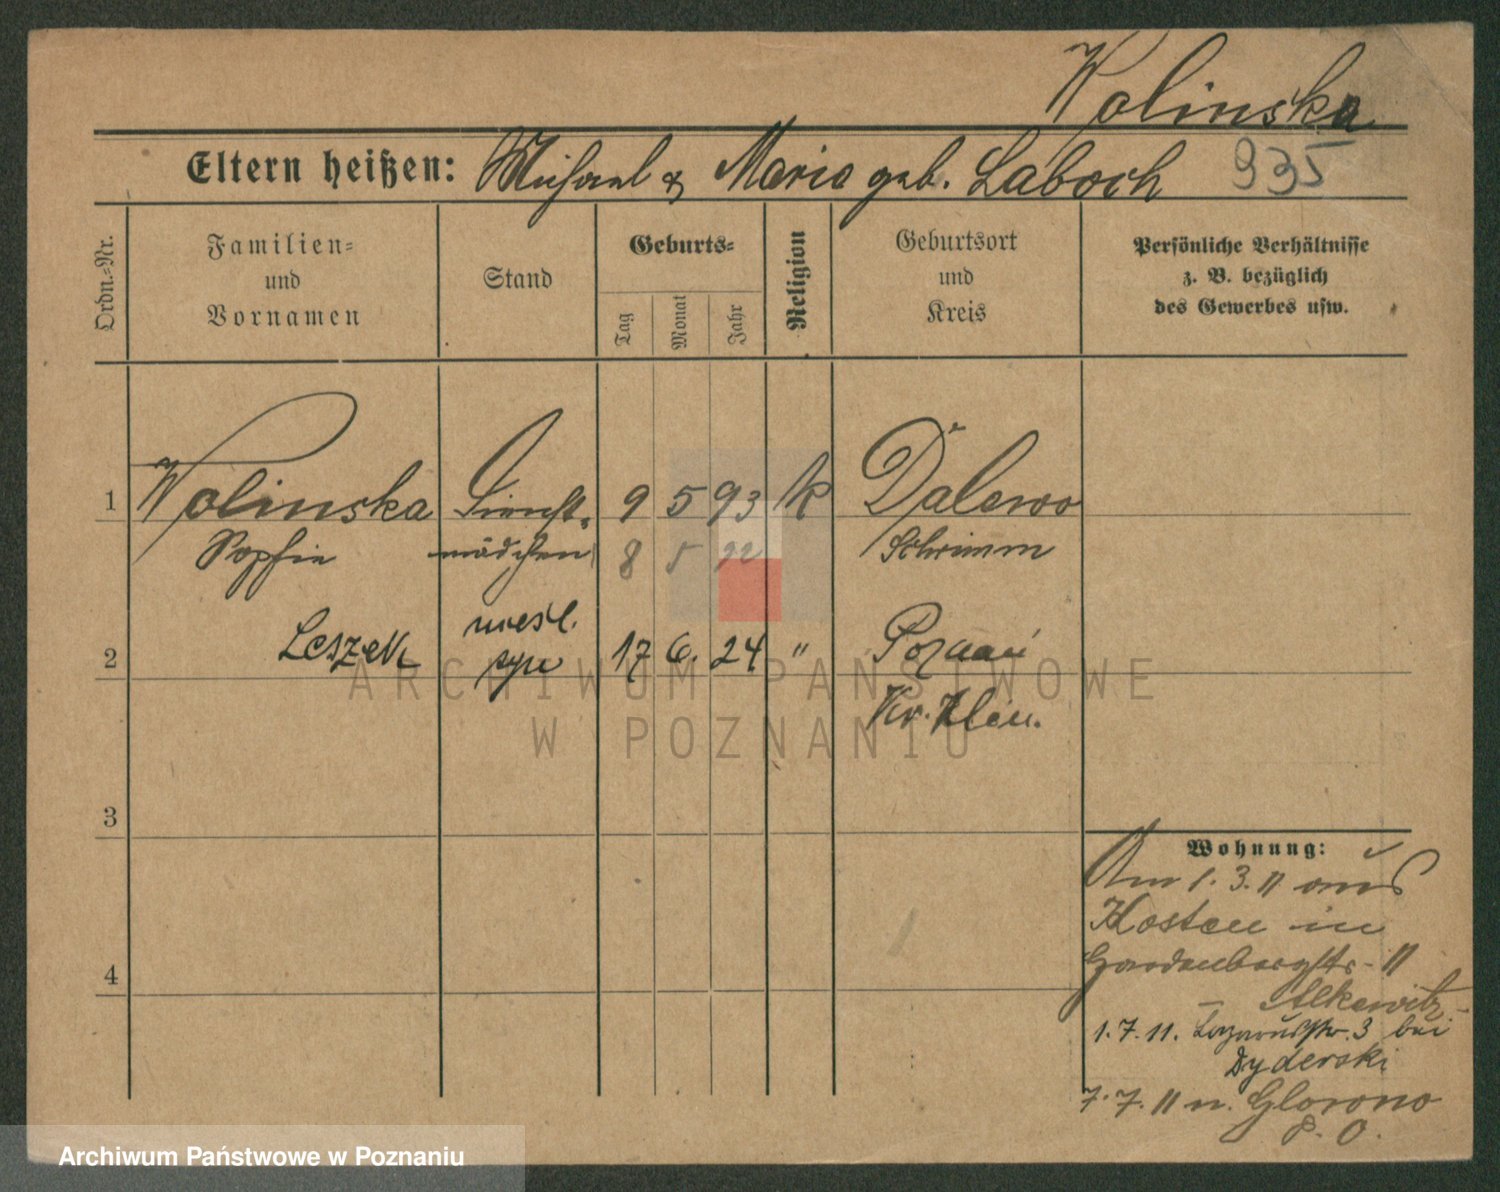 Wolinska
Eltern heißen: Michael & Maria geb. Laboch 935
Ordn.-Nr.
Familien-
und
Vornamen
Stand
Geburts-
Tag
Monat
Jahr
Religion
Geburtsort
und
Kreis
Persönliche Verhältnisse
z. B. bezüglich
des Gewerbes usw.
1 Wolinska Dienst- 9 5 93 k Dalewo
Sophie mädchen 8 5 92 Schrimm
nieśl.
2 Leszek syn 17 6. 24 " Poznań
Kr. Klin.
3
4
Wohnung:
Am 1. 3. 11 aus
Kosten in
Hardenbergstr. 11
Alkewitz
1. 7. 11. Lazarusstr. 3 bei
Dyderski
7. 7. 11 n. Glowno
P. O.
ARCHIWUM PAŃSTWOWE
W POZNANIU
Archiwum Państwowe w Poznaniu